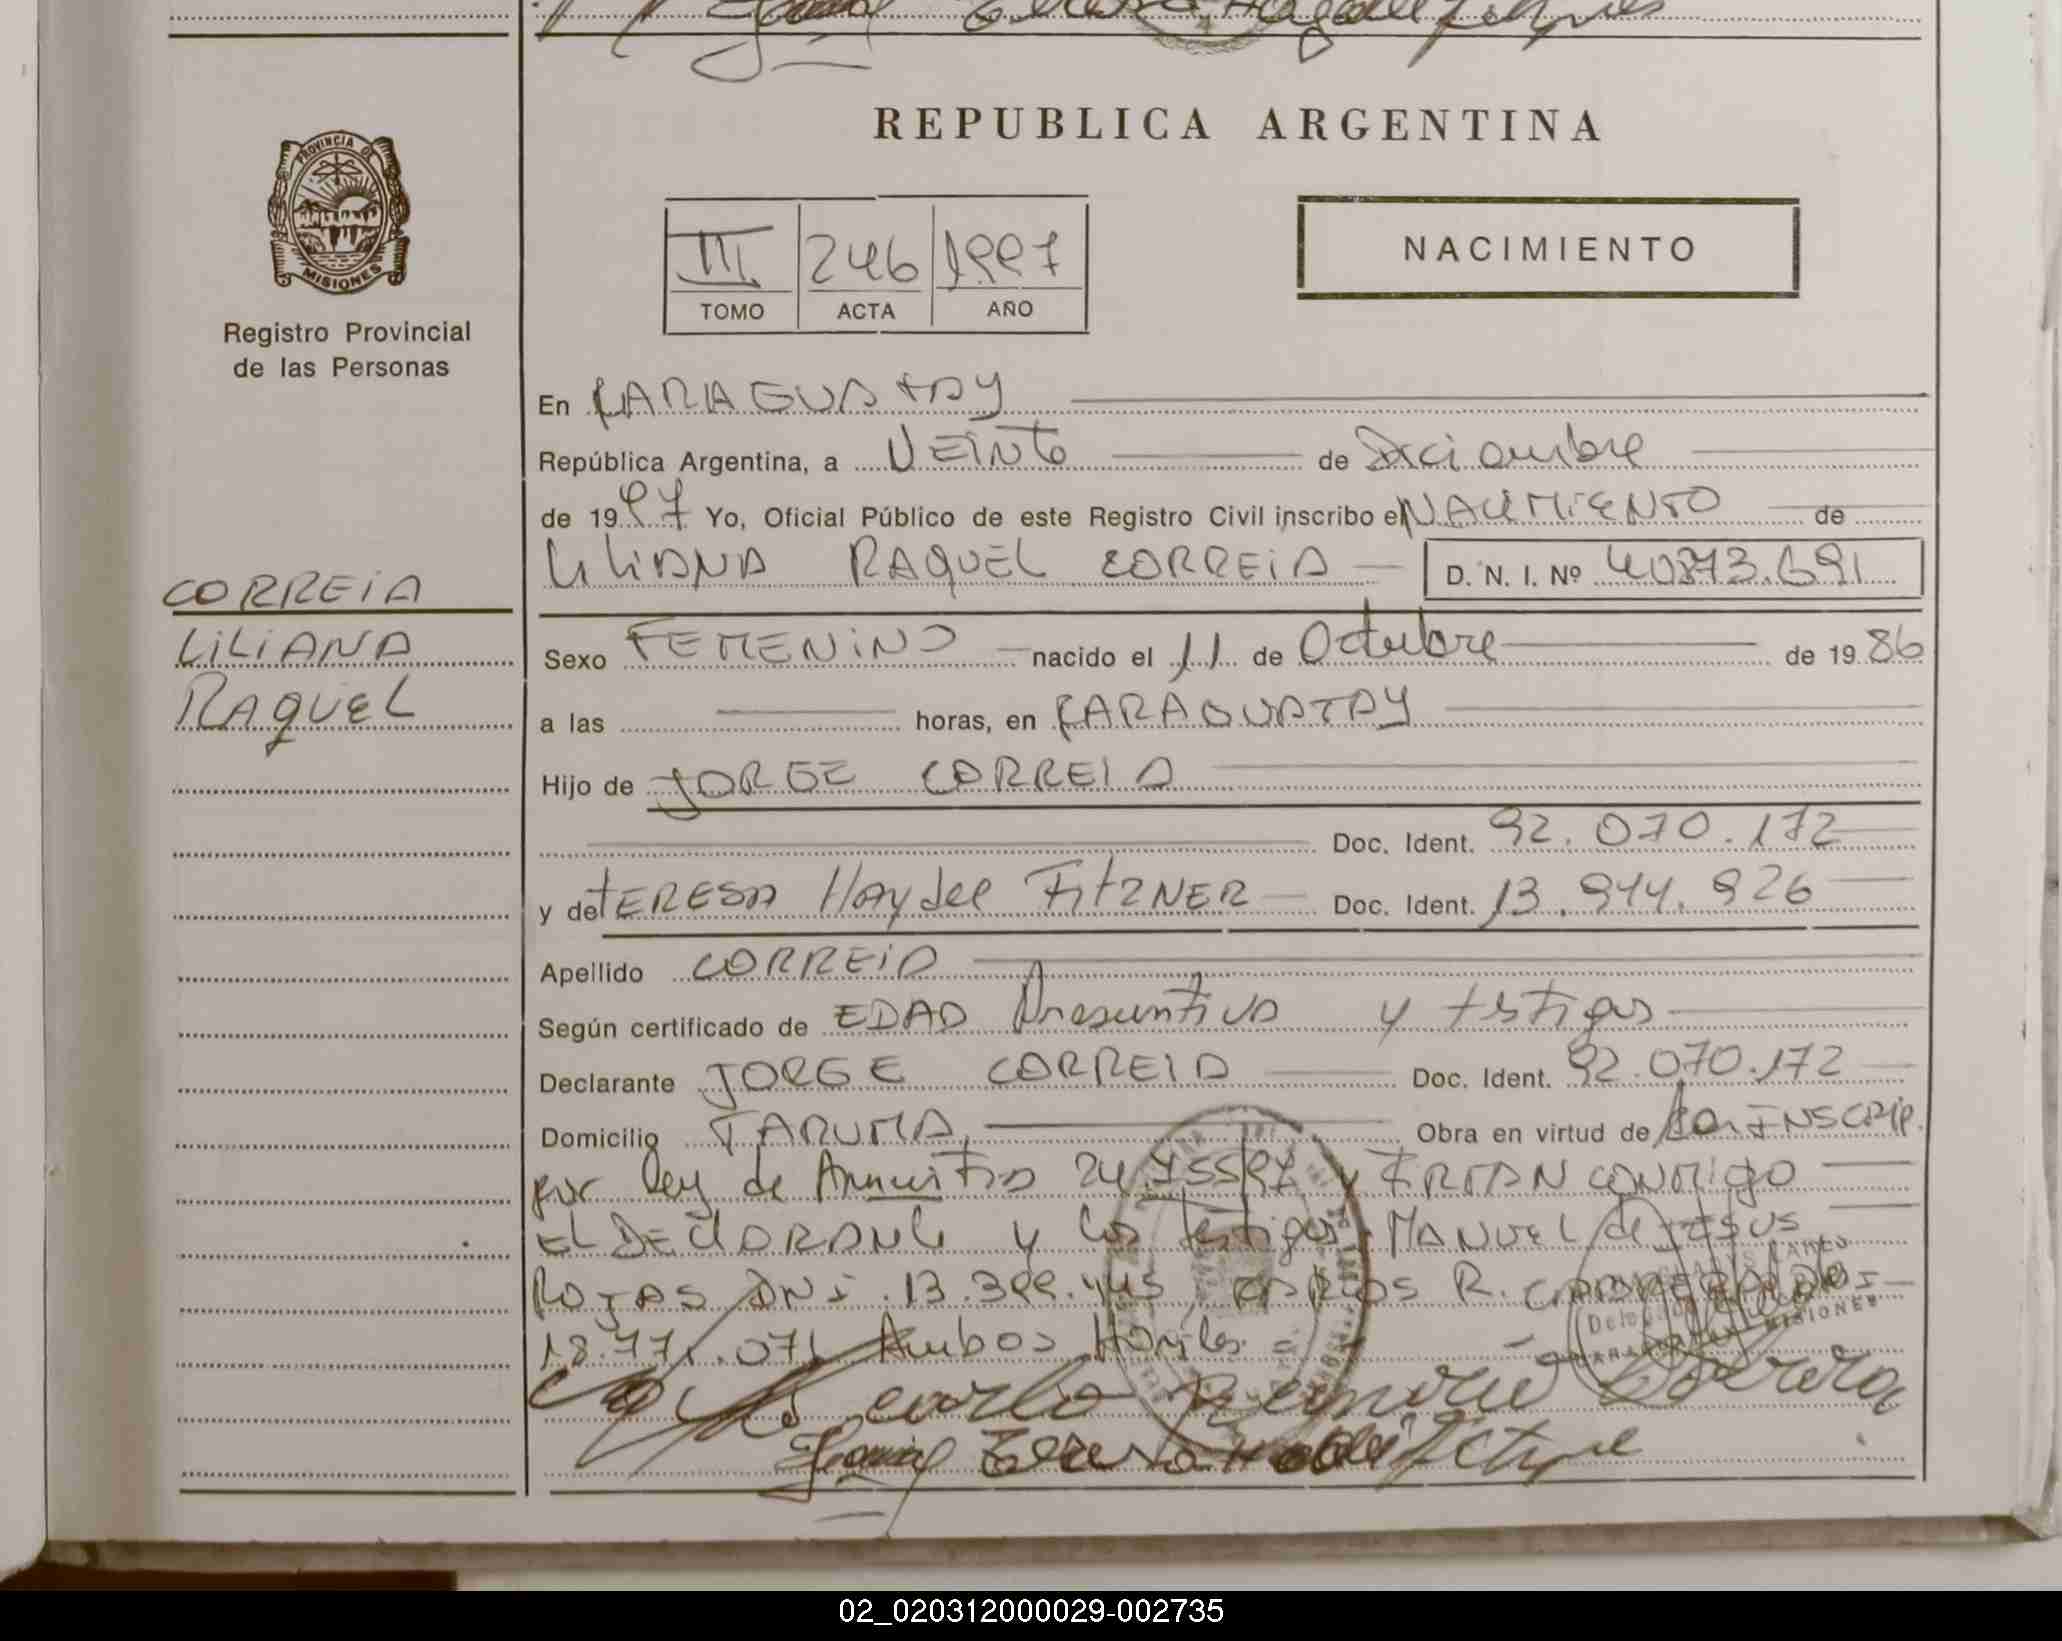 REPUBLICA ARGENTINA
PROVINCIA DE
MISIONES
Registro Provincial
de las Personas
III 246 1997
TOMO ACTA AÑO
NACIMIENTO
En CARAGUATAY
República Argentina, a VEINTE de Diciembre
de 1997 Yo, Oficial Público de este Registro Civil inscribo el NACIMIENTO de
LILIANA RAQUEL CORREIA D. N. I. Nº
CORREIA
LILIANA
RAQUEL
Sexo FEMENINO nacido el 11 de Octubre de 1986
a las horas, en CARAGUATAY
Hijo de JORGE CORREIA
Doc. Ident. 92.070.172
y de TERESA Haydee FITZNER Doc. Ident. 13.944.926
Apellido CORREIA
Según certificado de EDAD Presuntiva y testigos
Declarante JORGE CORREIA Doc. Ident. 92.070.172
Domicilio TARUMA, Obra en virtud de INSCRIP.
por ley de Amnistia y FIRMAN CONMIGO
EL DECLARANTE y los testigos MANUEL de JESUS
ROJAS DNI 13.399.445 CARLOS R.
Ambos
MISIONES
02_020312000029-002735